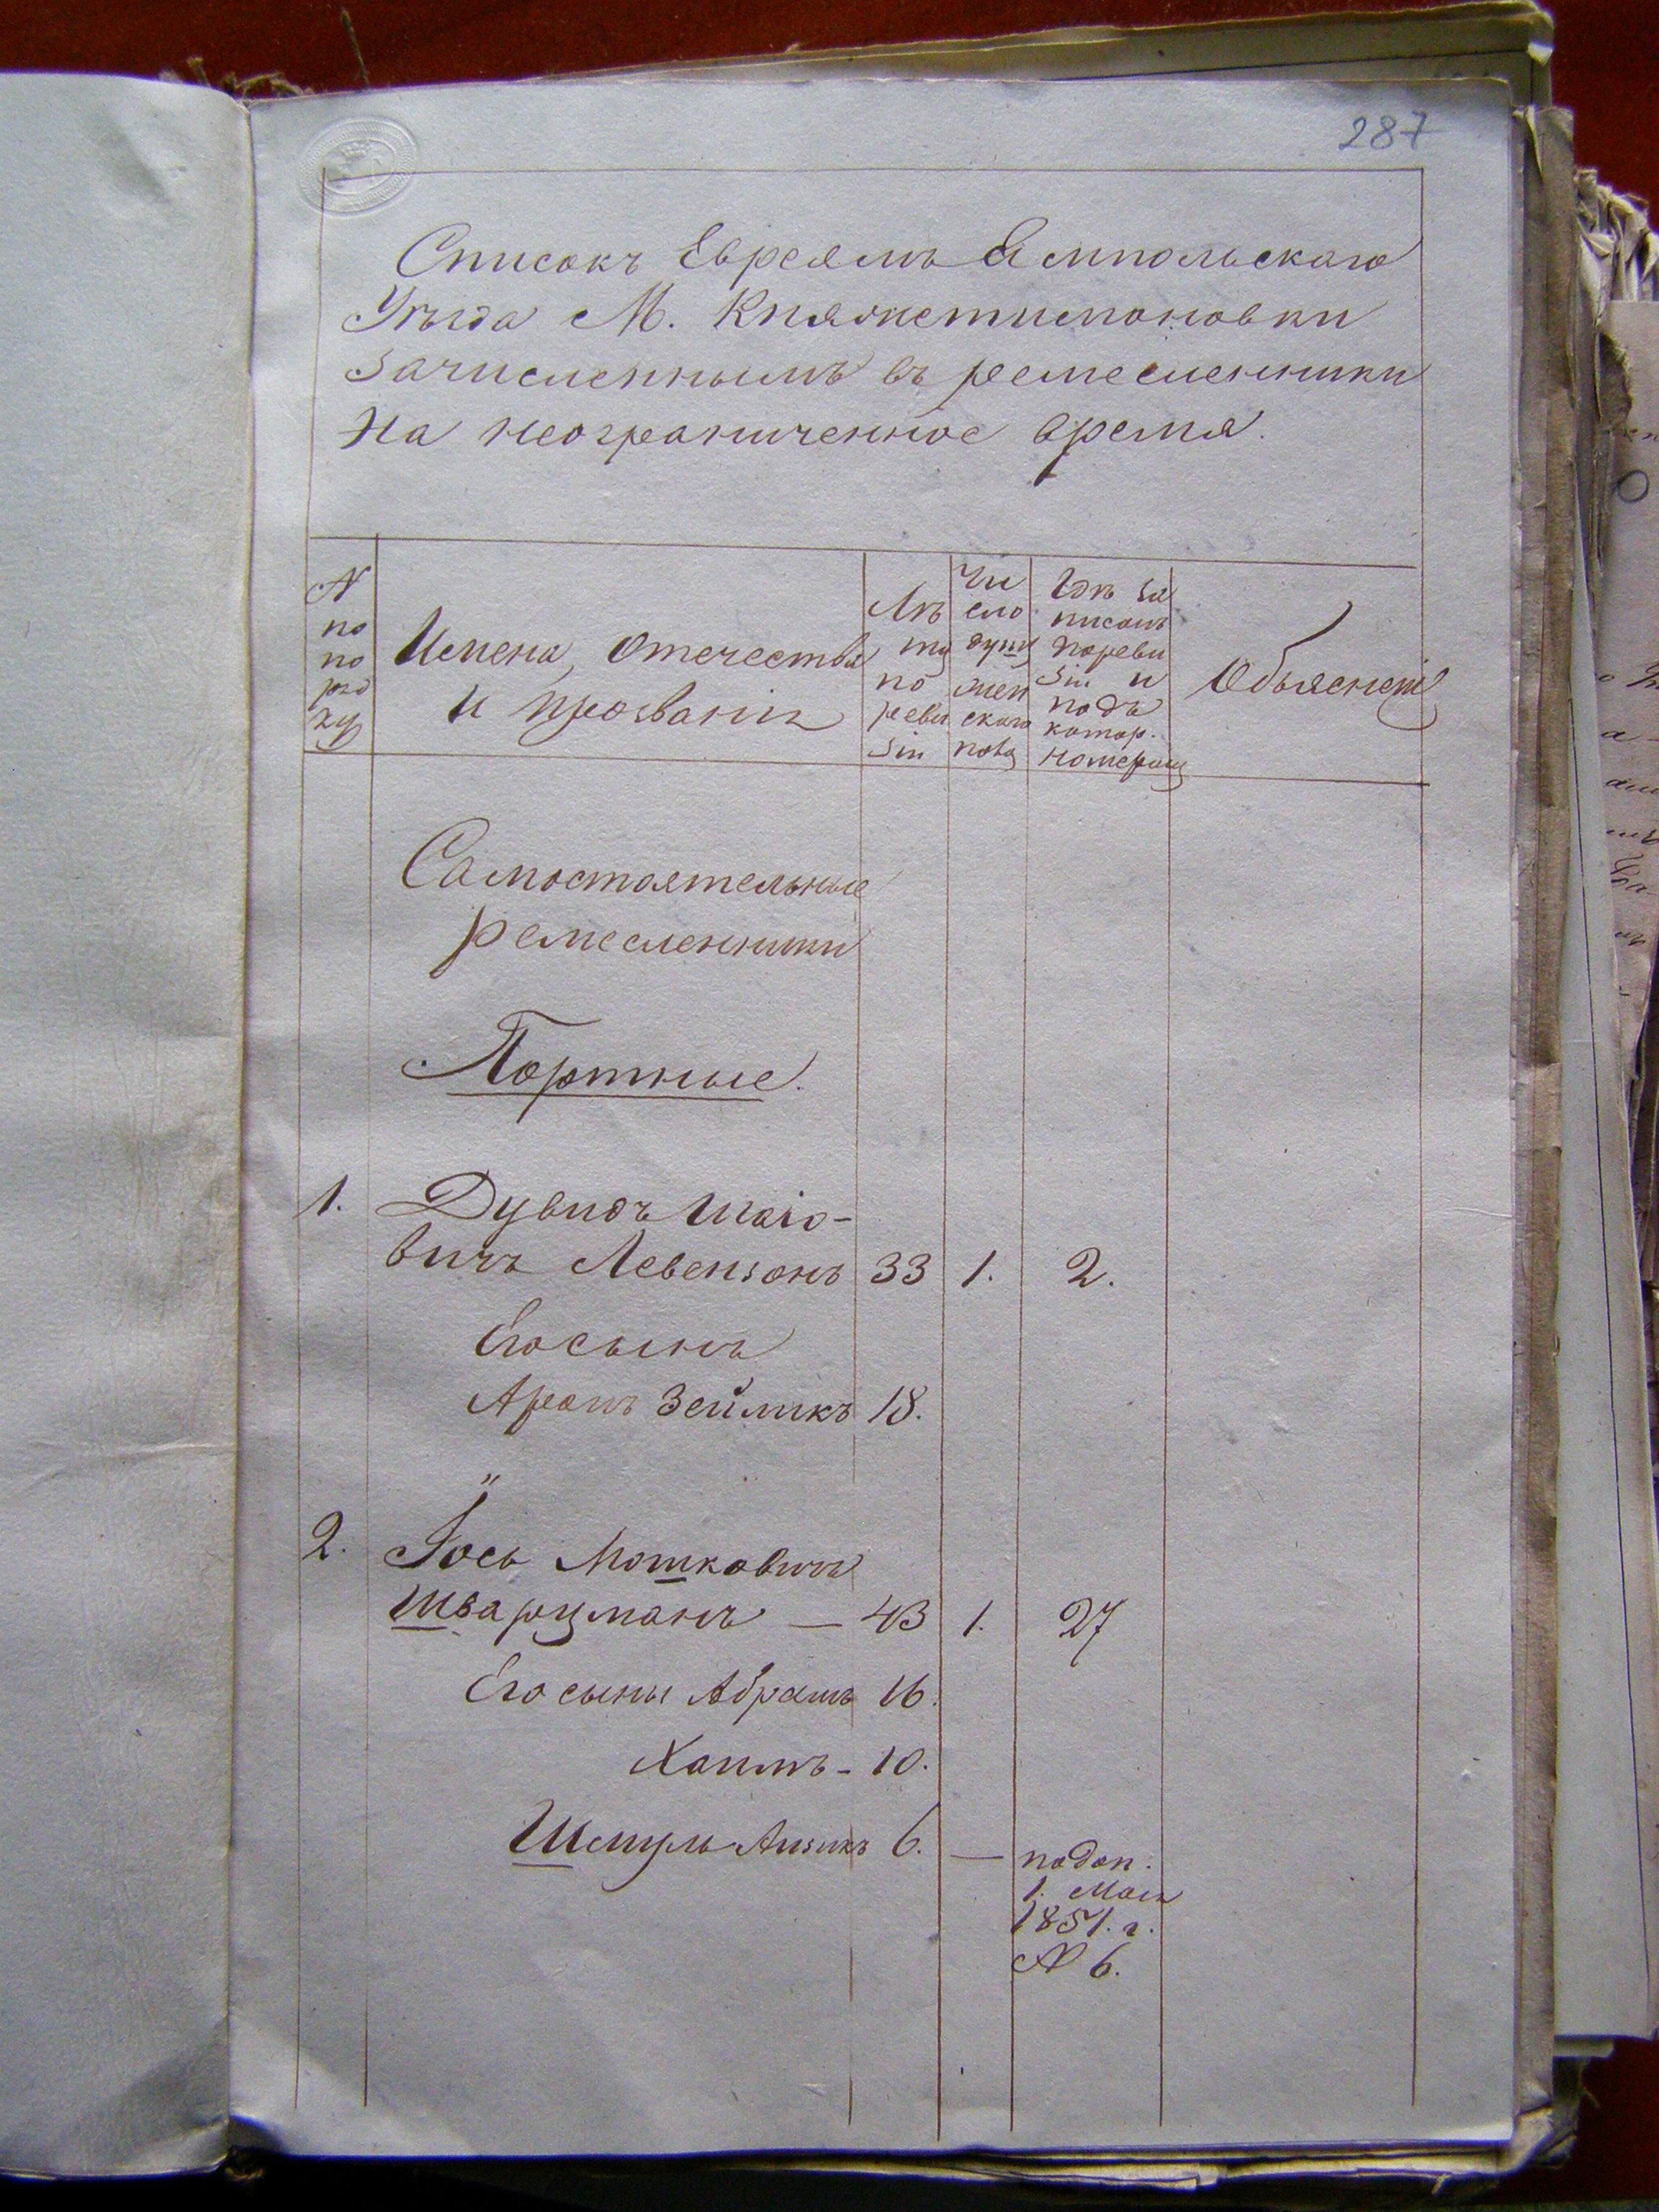 287
Списокъ Евреямъ Ямпольскаго
Уѣзда М. Княжетимоновки
Зачисленнымъ въ ремесленники
На неограниченное время.
№ по по ряд ку
Имена, Отечества и прозванія
Лѣ та по реви зіи
Чи сло душъ жен скаго пола
Гдѣ за писанъ пореви зіи и подъ котор. номеромъ
Объясненіе
Самостоятельные
ремесленники
Портные.
1. Дувидъ Шаіо-
вичъ Левензонъ 33 1. 2.
Его сынъ
Аронъ Зейликъ 18.
"
2. Іось Мошковичъ
Шварцманъ — 43 1. 27
Его сыны Абрамъ 16.
Хаимъ - 10.
Шмуль Аизикъ 6. — подоп.
1. Мая
1851. г.
№ 6.